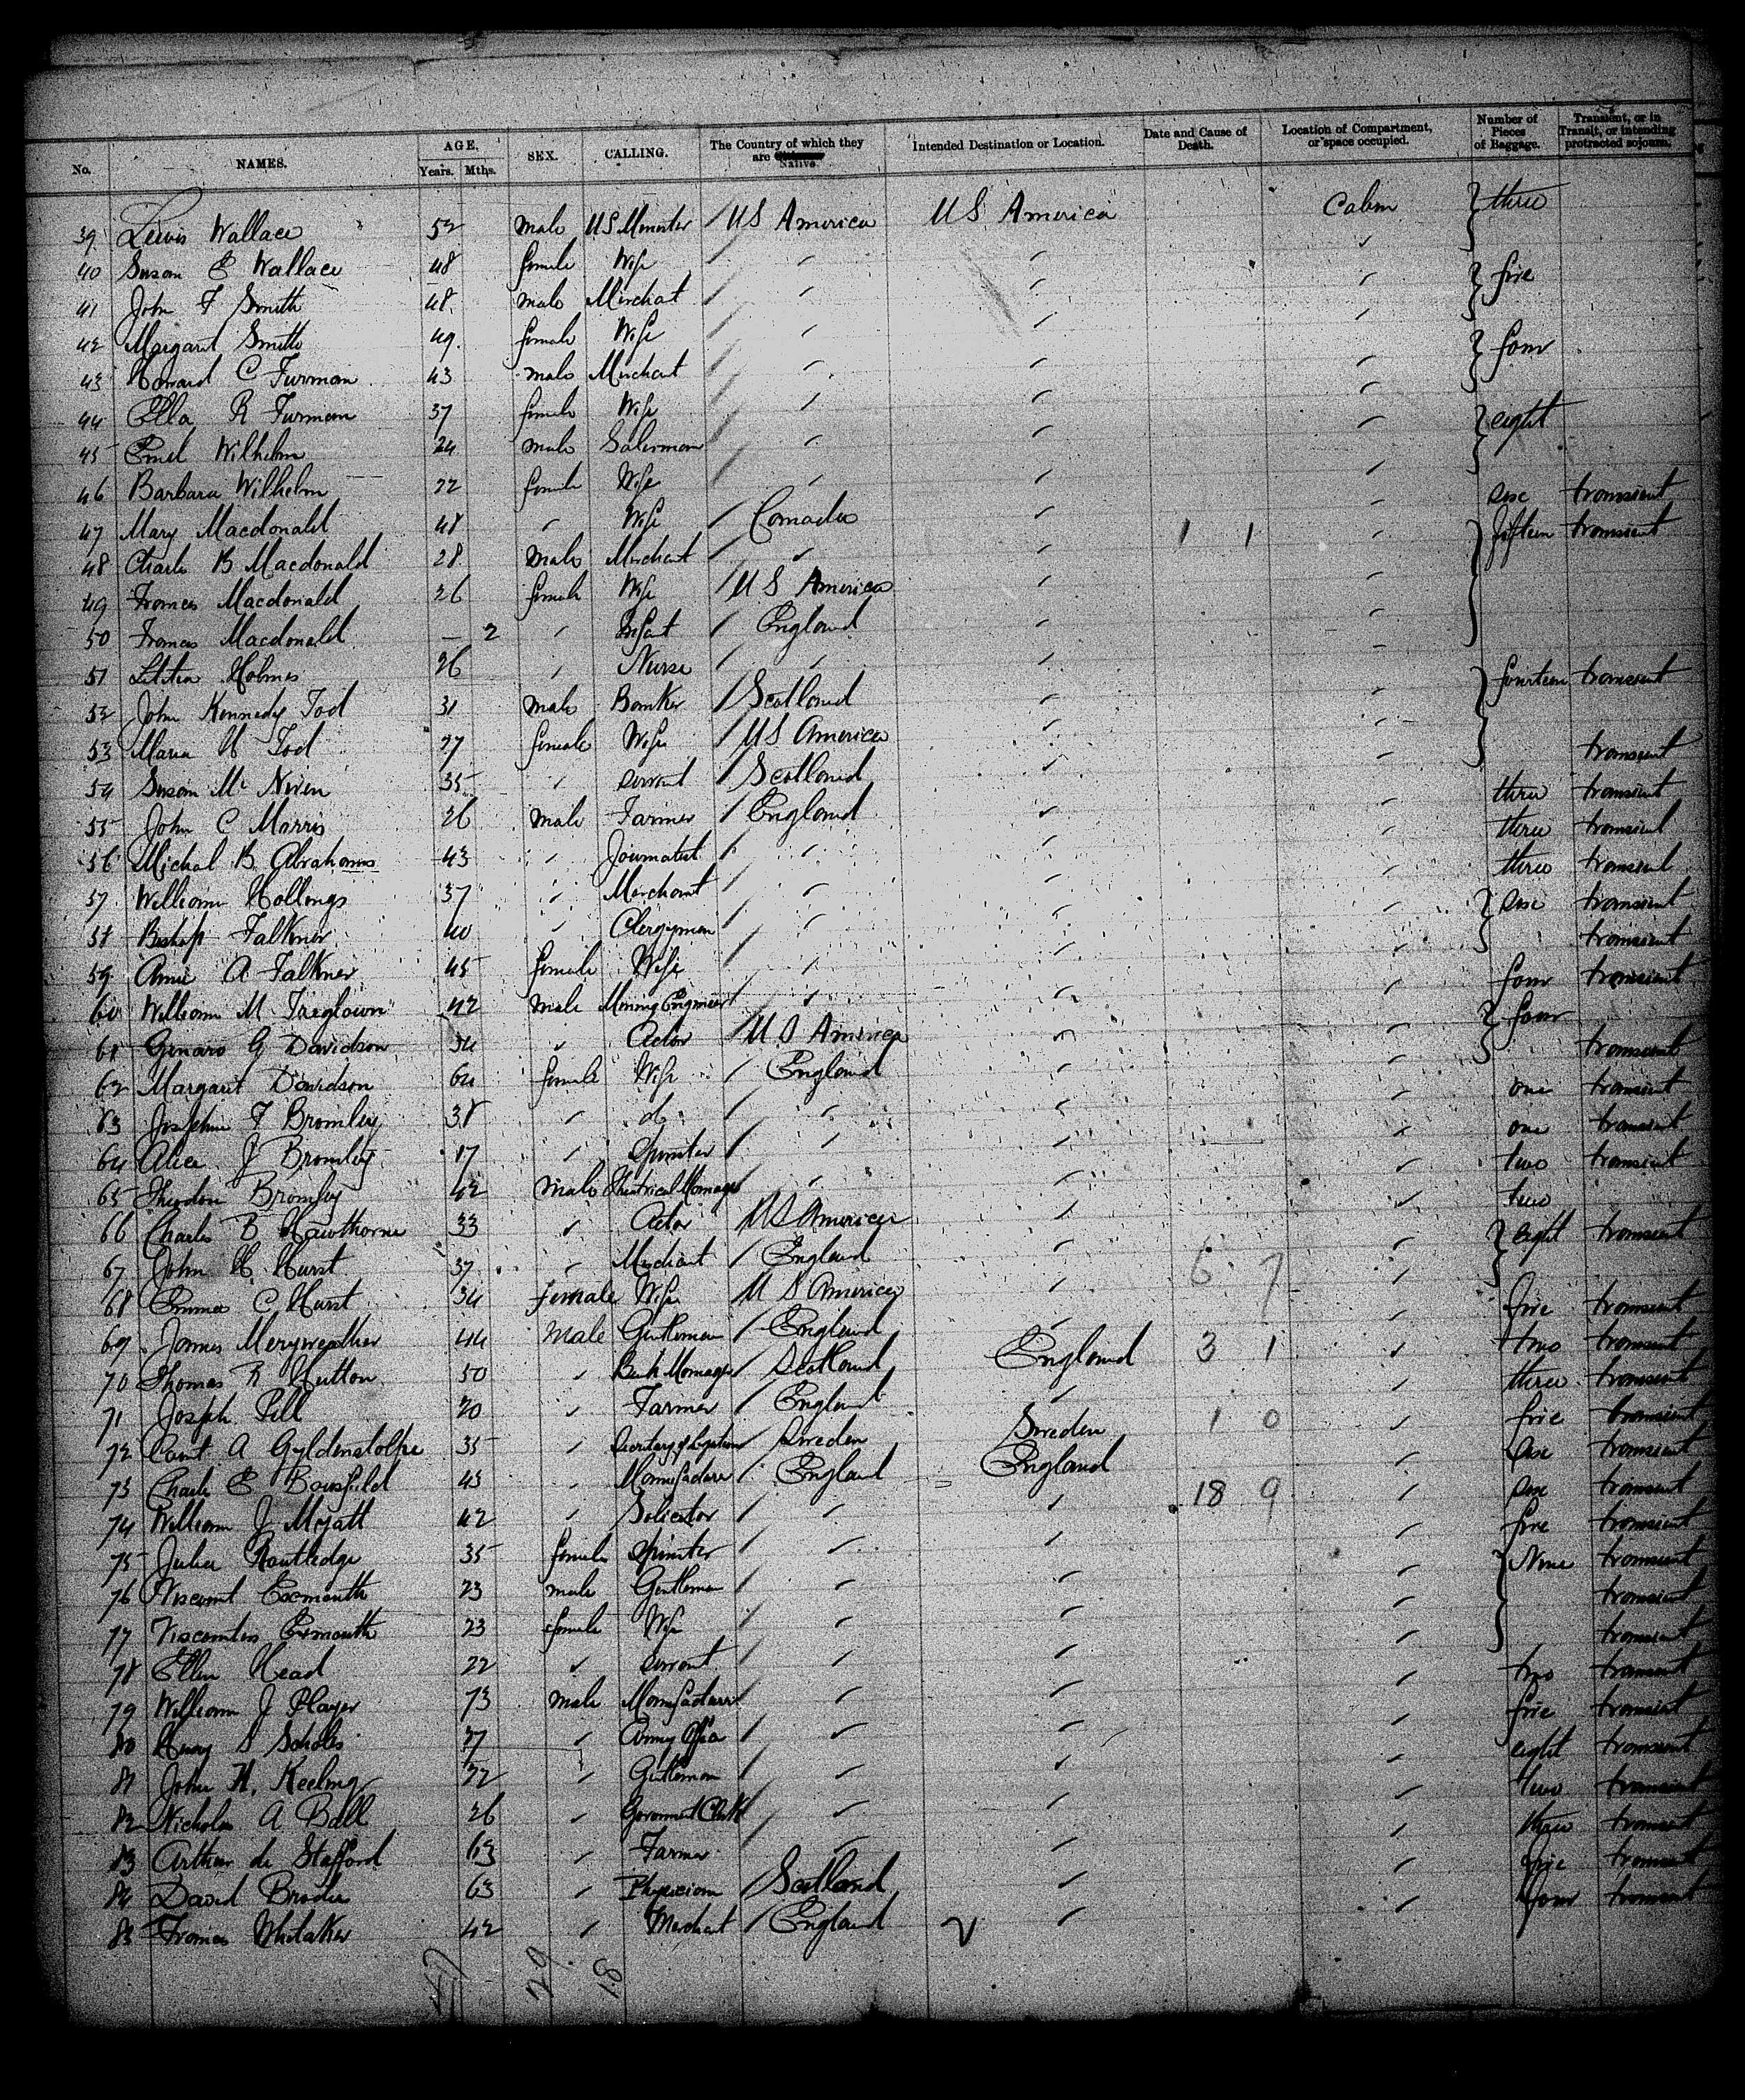 No. NAMES. AGE, Years. Mths. SEX. CALLING. The Country of which they are Native Intended Destination or Location. Date and Cause of Death. Location of Compartment, or space occupied. Number of Pieces of Baggage. Transient, or in Transit, or intending protracted sojourn.
39 Lewis Wallace 52 male US Minister / US America US America Cabin } three
40 Susan E Wallace 48 female Wife / ✓ ✓ ✓
41 John F Smith 48 male Merchat / ✓ ✓ ✓ } five
42 Margaret Smith 49 female Wife / ✓ ✓ ✓
43 Howard C Furman 43 male Merchant / ✓ ✓ ✓ } four
44 Ella R Furman 37 female Wife / ✓ ✓ ✓
45 Emil Wilhelm 24 male Salesman / ✓ ✓ ✓ } eight
46 Barbara Wilhelm 22 female Wife / ✓ ✓ ✓
47 Mary Macdonald 48 ✓ Wife / Canada ✓ 1 1 ✓ six transient
48 Charles B Macdonald 28 male Merchant / ✓ ✓ ✓ } fifteen transient
49 Frances Macdonald 26 female Wife / US America ✓ ✓
50 Frances Macdonald — 2 ✓ Infant / England ✓ ✓
51 Letitia Holmes 26 ✓ Nurse / ✓ ✓ ✓
52 John Kennedy Tod 31 male Banker / Scotland ✓ ✓ } fourteen transient
53 Maria H Tod 27 female Wife / US America ✓ ✓
54 Susan Mc Niven 35 ✓ servant / Scotland ✓ ✓ transient
55 John C Morris 26 male Farmer / England ✓ ✓ three transient
56 Michal B Abrahams 43 ✓ Journalist / ✓ ✓ ✓ three transient
57 William Hollings 37 ✓ Merchant / ✓ ✓ ✓ three transient
58 Bishop Falkner 40 ✓ Clergyman / ✓ ✓ ✓ } six transient
59 Annie A Falkner 45 female Wife / ✓ ✓ ✓ transient
60 William M 42 male Mining Engineer / ✓ ✓ ✓ four transient
61 Genaro G Davidson 54 ✓ Actor / U.S America ✓ ✓ } four
62 Margaret Davidson 64 female Wife / England ✓ ✓ transient
63 Josephine F Bromley 38 ✓ do / ✓ ✓ ✓ one transient
64 Alice J Bromley 17 ✓ Spinster / ✓ ✓ ✓ one transient
65 Theodore Bromley 42 male Theatrical Manager / ✓ ✓ ✓ two transient
66 Charles B Hawthorne 33 ✓ Actor US America ✓ ✓ two
67 John H Hurst 37 ✓ Merchant / England ✓ 6 7 ✓ } eight transient
68 Emma C Hurst 34 Female Wife / U S America ✓ ✓
69 James Meryweather 44 Male Gentleman / England ✓ ✓ five transient
70 Thomas R Hutton 50 ✓ Bank Manager / Scotland England 3 1 ✓ two transient
71 Joseph Pell 20 ✓ Farmer / England ✓ ✓ three transient
72 Count A Gyldenstolpe 35 ✓ Secretary of Legation / Sweden Sweden 1 0 ✓ five transient
73 Charle E Bousfield 43 ✓ Manufacturer / England England ✓ six transient
74 William J Myatt 42 ✓ Solicitor / ✓ ✓ 18 9 ✓ six transient
75 Julia Routledge 35 female Spinster / ✓ ✓ ✓ five transient
76 Viscount Exmouth 23 male Gentleman / ✓ ✓ ✓ } Nine transient
77 Viscountess Exmouth 23 female Wife / ✓ ✓ ✓ transient
78 Ellen Head 22 ✓ servant / ✓ ✓ ✓ transient
79 William J Player 73 male Manufacturer / ✓ ✓ ✓ two transient
80 Henry S Scholes 27 ✓ Army Officer / ✓ ✓ ✓ five transient
81 John H. Keeling 22 ✓ Gentleman / ✓ ✓ ✓ eight transient
82 Nicholas A Ball 26 ✓ Government Clerk / ✓ ✓ ✓ two transient
83 Arthur de Stafford 63 ✓ Farmer ✓ ✓ ✓ three transient
84 David Brodie 63 ✓ Physician / Scotland ✓ ✓ five transient
85 Francis Whitaker 42 ✓ Merchant / England ✓ ✓ four transient
47 29 18